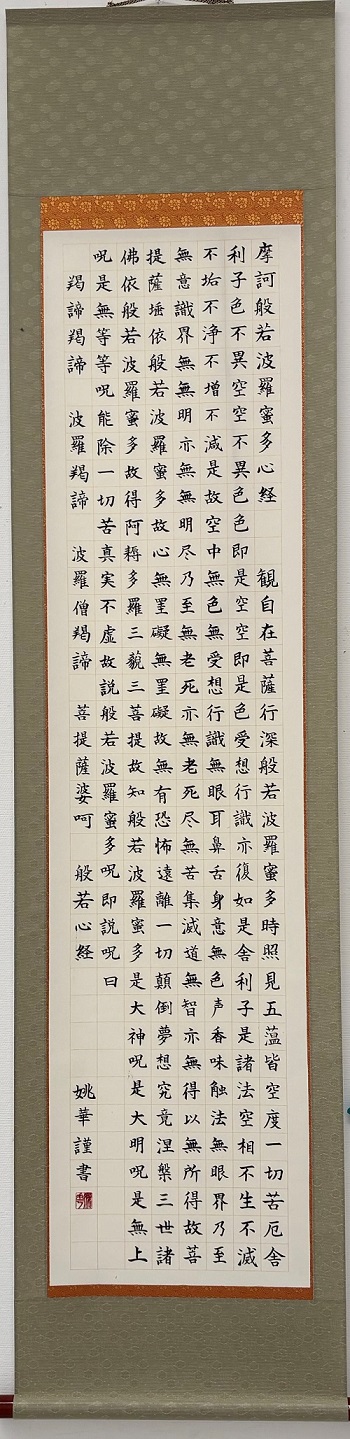 摩訶般若波羅蜜多心経　観自在菩薩行深般若波羅蜜多時照見五蘊皆空度一切苦厄舎
利子色不異空空不異色色即是空空即是色受想行識亦復如是舎利子是諸法空相不生不滅
不垢不浄不増不減是故空中無色無受想行識無眼耳鼻舌身意無色声香味触法無眼界乃至
無意識界無無明亦無無明尽乃至無老死亦無老死尽無苦集滅道無智亦無得以無所得故菩
提薩埵依般若波羅蜜多故心無罣礙無罣礙故無有恐怖遠離一切顛倒夢想究竟涅槃三世諸
佛依般若波羅蜜多故得阿耨多羅三藐三菩提故知般若波羅蜜多是大神呪是大明呪是無上
呪是無等等呪能除一切苦真実不虚故説般若波羅蜜多呪即説呪曰
羯諦羯諦　波羅羯諦　波羅僧羯諦　菩提薩婆呵　般若心経　姚華謹書